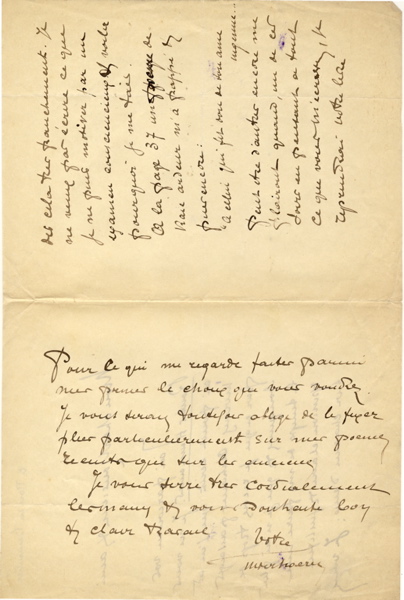 des cela très franchement. Je
ne veux pas écrire ce que
je ne puis motiver par un
examen consciencieux & voilà
pourquoi je me tais.
A la page 37 un poème de
rare ardeur m'a frappé &
puis encore:
à celui qui fit don de son âme
ingénue...
Peut être d'autres encore me
plairont quand, un de ces
jours en pensant à tout
ce que vous m'écrivez, je
reprendrai votre livre
Pour ce qui me regarde faites parmi
mes poèmes le choix que vous voudrez.
Je vous serais toutefois obligé de le fixer
plus particulièrement sur mes poèmes
récents que sur les anciens
Je vous serre très cordialement
les mains & vous souhaite bon
& clair travail
Votre
Verhaeren